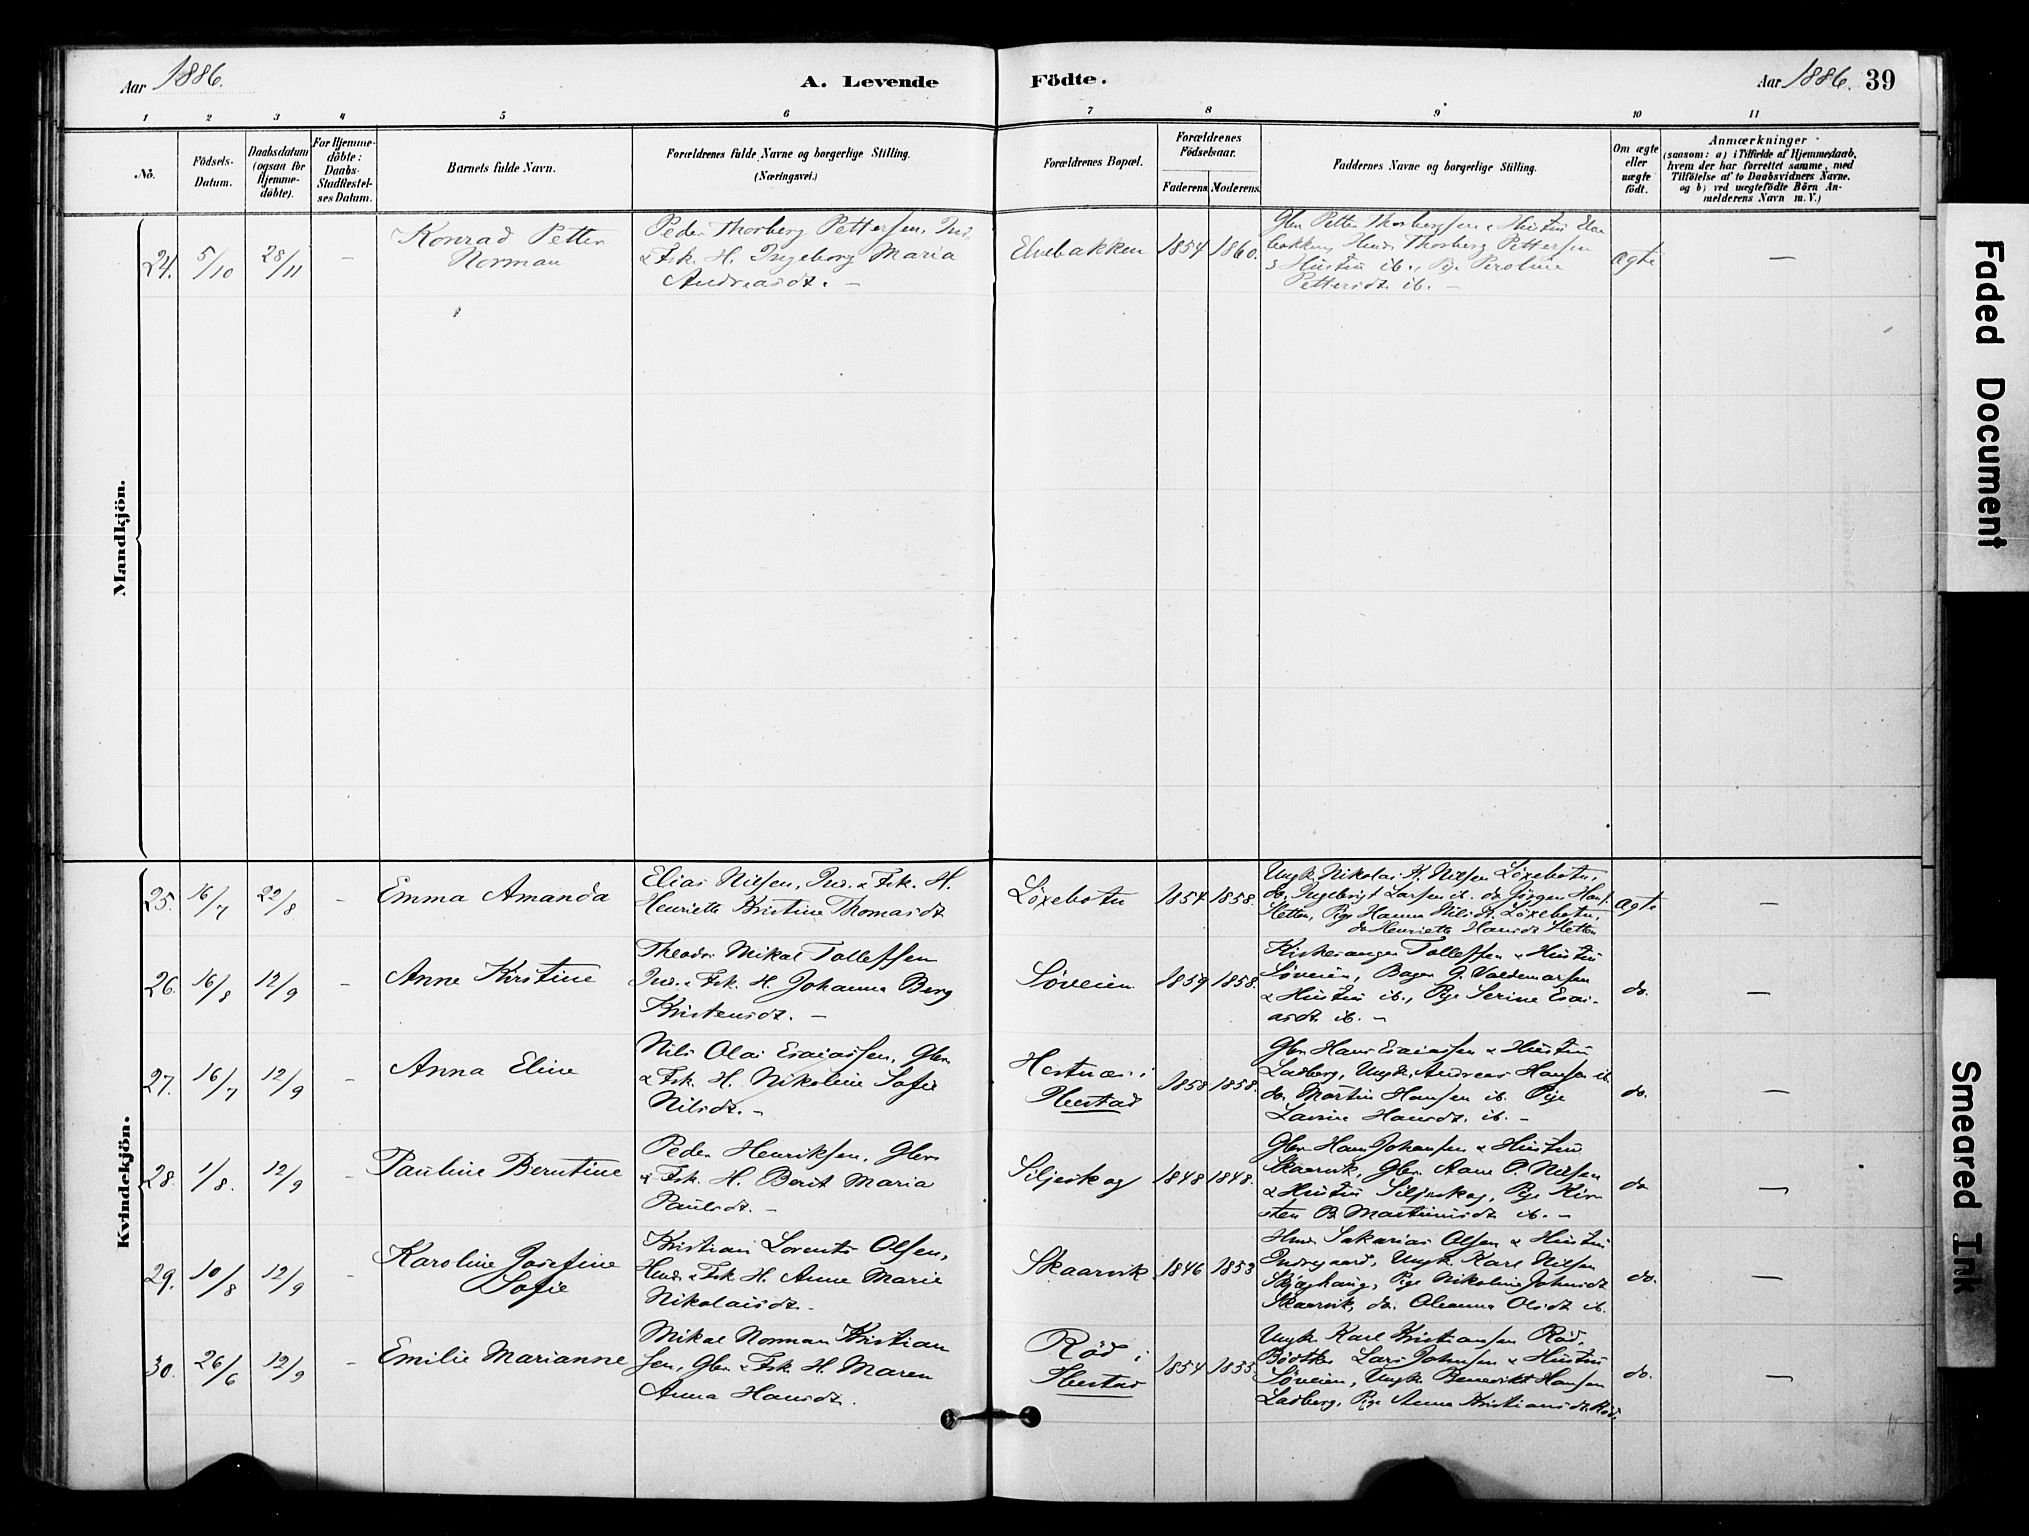 Aar 1886.
A. Levende
Födte.
Aar 1886. 39
1 2 3 4 5 6 7 8 9 10 11
No.
Födsels-
Datum.
Daabsdatum
(ogsaa for
Hjemme-
döbte).
For Hjemme-
döbte:
Daabs-
Stadfæstel-
ses Datum.
Barnets fulde Navn.
Forældrenes fulde Navne og borgerlige Stilling.
(Næringsvei.)
Forældrenes Bopæl.
Forældrenes
Födselsaar.
Faderens. Moderens.
Faddernes Navne og borgerlige Stilling.
Om ægte
eller
uægte
födt.
Anmærkninger
(saasom: a) i Tilfælde af Hjemmedaab,
hvem der har forrettet samme, med
Tilföielse af to Daabsvidners Navne,
og b) ved uægtefödte Börn An-
melderens Navn m. V.)
Mandkjön.
24. 5/10 28/11 –
Konrad Petter
Norman
Peder Thorberg Pettersen, Ind.
& Fsk. H. Ingeborg Maria
Andreasdt. –
Elvebakken 1854 1860.
Gbr. Petter Thorbergsen & Hustru Elve
bakken, Hmd. Thorberg Pettersen
& Hustru ib., Pige Peroline
Pettersdt. ib. –
Ægte –
Kvindekjön.
25. 16/7 22/8 –
Emma Amanda
Elias Nilsen, Ind. & Fsk. H.
Henriette Kristine Thomasdt
Löxebotn 1854 1858.
Ungk. Nikolai K. Nilsen Löxebotn,
do. Ingebrigt Larsen ib. do Jörgen Hans.
Sletten, Pige Hanna Nilsdt. Löxebotn,
do Henriette Hansdt Sletten
ægte –
26. 16/8 12/9 –
Anne Kirstine
Theodor Mikal Tollefsen
Ind. & Fsk. H. Johanna Berg
Kristensdt. –
Söveien 1859 1858.
Kirkesanger Tollefsen & Hustru
Söveien, Bager J. Valdemarsen
& Hustru ib., Pige Serine Esai-
asdt. ib. –
do. –
27. 16/7 12/9 –
Anna Eline
Nils Olai Esaiassen, Gbr.
& Fsk. H. Nikoline Sofie
Nilsdt. –
Hestnæs i
Ibestad
1858 1858.
Gbr Hans Esaiassen & Hustru
Ladberg, Ungk. Andreas Hansen ib.
do. Martin Hansen ib. Pige
Lavine Hansdt. ib. –
do. –
28. 1/8. 12/9 –
Pauline Berntine
Peder Henriksen, Gbr.
& Fsk. H. Berit Maria
Paulsdt. –
Siljeskog 1848 1848.
Gbr Hans Johansen & Hustru
Skaarvik, Gbr. Aane O. Nilsen
& Hustru Siljeskog, Pige Kir
sten B. Martinusdt. ib. –
do –
29. 10/8 12/9 –
Karoline Josefine
Sofie
Kristian Lorents Olsen,
Hmd. & Fsk H. Anne Marie
Nikolaisdt. –
Skaarvik 1846 1853
Hmd Sakarias Olsen & Hustru
Indregaard, Ungk. Karl Nilsen
Skoghaug, Pige Nikoline Johnsdt
Skaarvik, do. Oleanna Olsdt ib.
do. –
30. 26/6 12/9 –
Emilie Marianne
Mikal Norman Kristian
sen, Gbr & Fsk. H. Maren
Anna Hansdt.
Röd i
Ibestad
1854 1855.
Ungk. Karl Kristiansen Röd,
Bödtker Lars Johnsen & Hustru
Söveien, Ungk. Benedikt Hansen
Ladberg, Pige Anna Kristiansdt. Röd.
do. –
Faded Document
Smeared Ink